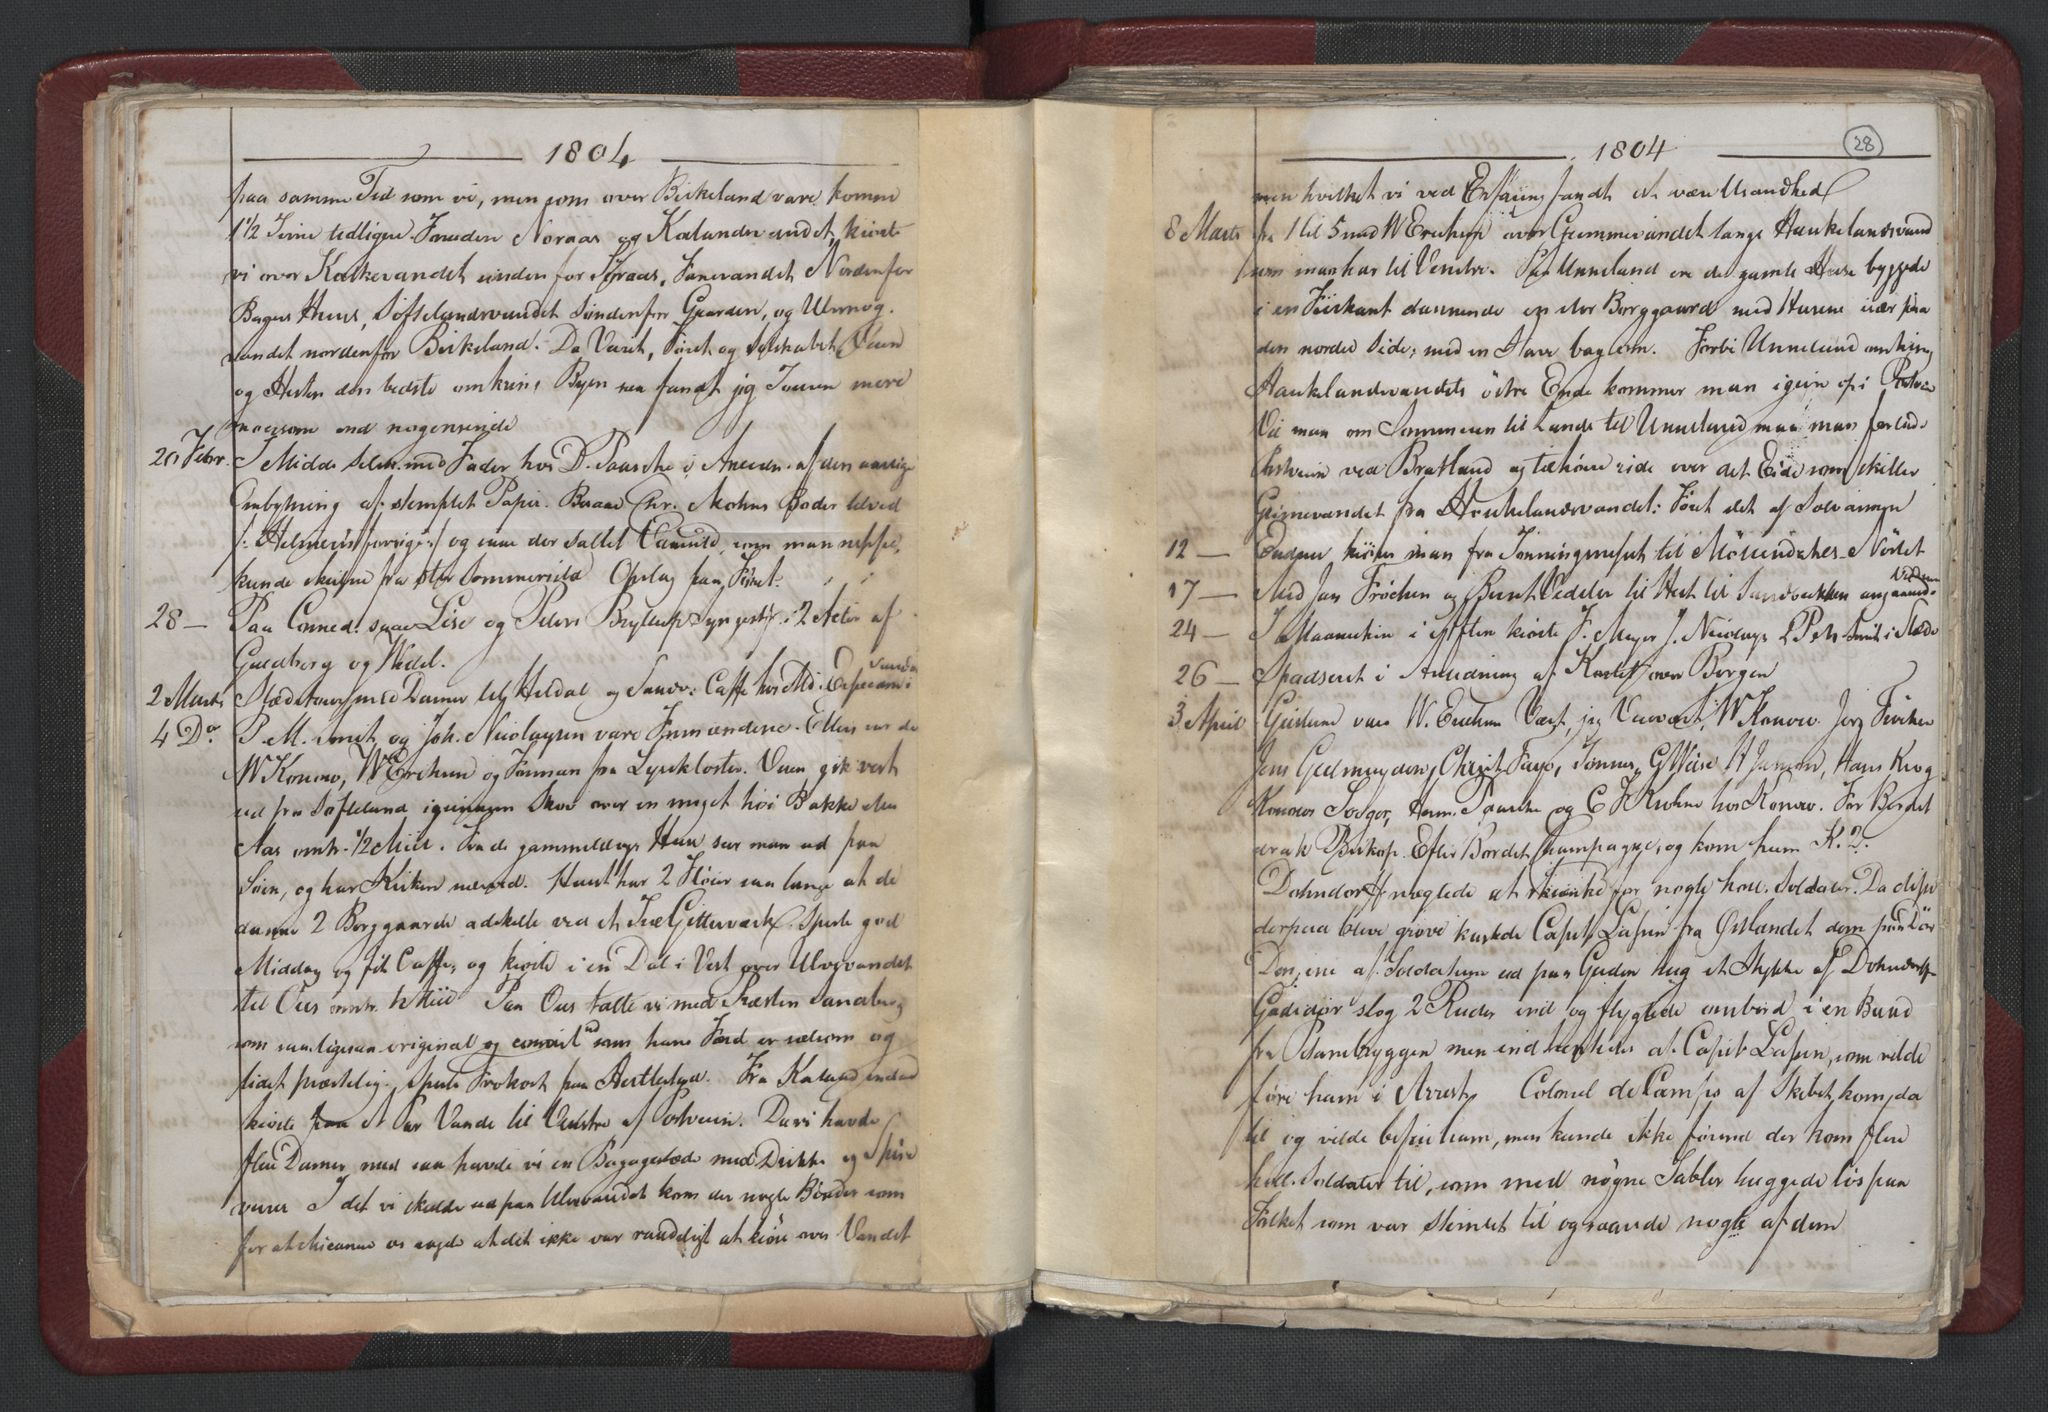 1804
paa samme Tid som vi, men som over Birkeland vare komne
1½ Time tidligere. Foruden Noraas og Kalandsvandet kiørte
vi over Kokkevandet nedenfor Søraas, Fanevandet Nordenfor
Huus, Søftelandsvandet Søndenfor Gaarden, og Ulvevog-
vandet nordenfor Birkeland. Da Veiret, Føret og Selskabet, Veien
og Hesten den bedste omkring Byen saa fandt jeg Touren mere
morsom end nogensinde
20 Febr. I Midd. Selsk. med Fader hos D. Paasche i Anledn. af den aarlige
Ombytning af stemplet Papir. Besaae Chr. Mohns Boder
og saae der saltet som man neppe
kunde skielne fra stor Sommersild Opslag paa Føret.
28 — Paa Comed. saae Lise og Peters Bryllup Syngest: i 2 Acter af
Guldberg og Wedel.
2 Marts Slædetour med Damer til Heldal og Caffe hos Md.
4 Do P. M. Smit og Joh. Nicolaysen vare Formændene. Ellers var der
W Konow, W Erichsen og Formann fra Lysekloster. Veien gik vest
ud fra Søfteland igiennem Skov over en meget høi Bakke eller
Aas omtr. ½ Miil. Fra de gammeldags Huse saae man ud paa
Søen, og har Kirken nærved. Huset har 2 Fløier saa lange at de
danne 2 Borggaarde adskilte ved et Træ Gitterværk. Spiste god
Middag og fik Caffe, og kiørte i en Dal i Vest over Ulvevandet
til Ous omtr. ½ Miil Paa Ous talte vi med Præsten Sandberg
som saaligesaa original og som hans Færd er sælsom og
lidet præstelig. Spiste Frokost paa Hestlestad. Fra Kaland
kiørte paa et Par Vande til Venstre af Postveien. Da vi havde
flere Damer med saa havde vi en Bagageslæde med Drikke og Spise
varer I det vi skulde ud paa Ulvevandet kom der nogle Bønder som
for at chicanere os sagde at det ikke var raadeligt at kiøre over Vandet
1804
28
men hvilket vi ved Erfaring fandt at være Usandhed
8 Marts fra 1 til 5 med W Erichsen over Grimmevandet langs Haukelandsvand
som man har til Venstre. Paa Unneland ere de gamle Huse byggede
i en Fiirkant dannende en stor Borggaard med Husene især paa
den nordre Side; med en Have bag om. Forbi Unneland omkring
Haukelandsvandets østre Ende kommer man igien op i Postveien
Vil man om Sommeren til Lands til Unneland maa man forlade
Postveien ved Bratland og tilhøire ride over det Eide som skiller
Grimevandet fra Haukelandsvandet: Føret det af Solvarmen
12 — Endnu kiører man fra Jonningsnæset til Møllendahls-Nøstet
17 — Med Jan Frøchen og Bernt Vedeler til Hest til Sandvikken angaaende
24 — I Maaneskin i Aften kiørte F. Meyer J. Nicolays. P Pet. Smit i Slæde
26 — Spadseret i Anledning af Kastet over Borgen
3 April Giæstene vare W. Erichsen Vært, jeg W Konow Jørg Fricken
Jens Geelmuyden, Christ Faye, Tønnes, G Weise, H Jansen, Hans Krog
Konows Svoger, Herm. Paasche og C F Krohne hos Konow. Før Bordet
drak Biskop. Efter Bordet Champagne, og kom hiem K. 2.
Dohndorff nægtede at skienke for nogle holl. Soldater. Da disse
derpaa bleve grove kastede Capit. Lassen fra Østlandet dem paa Dør
Den ene af Soldaterne ud paa Gaden hug et Stykke af Dohndorffs
Gadedør slog 2 Ruder ind og flygtede ombord i en Baad
fra Bryggen men indhentedes af Capit. Lassen, som vilde
føre ham i Arrest. Colonel de Camps af Skibet, kom da
til og vilde befrie ham, men kunde ikke førend der kom flere
holl. Soldater til, som med nøgne Sabler huggede løs paa
Folket som var stimlet til og saarede nogle af dem